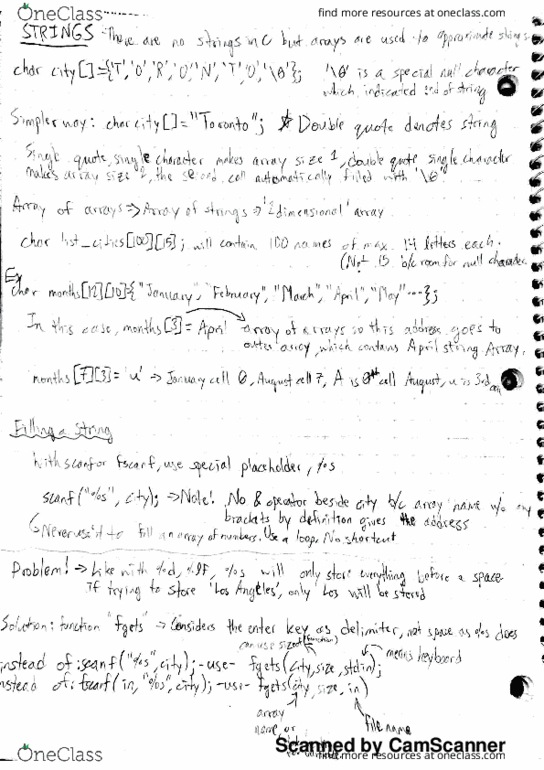 OneClass
find more resources at oneclass.com
STRINGS - There are no strings in C but arrays are used to approximate strings.
char city[]={'T','O','R','O','N','T','O','\0'}; '\0' is a special null character
which indicated end of string
Simpler way: char city[] = "Toronto"; Double quote denotes string
Single quote, single character makes array size 1, double quote single character
makes array size 2, the second cell automatically filled with '\0'
Array of arrays => Array of strings → '2 dimensional' array
char list_cities[100][15]; will contain 100 names of max. 14 letters each.
(Not 15 b/c room for null character
Ex
char months[12][10]={"January", "February", "March", "April", "May" ...};
In this case, months[3] = April array of arrays so this address goes to
outer array, which contains April string Array.
months[7][3]= 'u' → January cell 0, August cell 7, A is 0th cell August, u is 3rd
Filling a String
With scanf or fscanf, use special placeholder, %s
scanf("%s", city); → Note! No & operator beside city b/c array name w/o any
brackets by definition gives the address
Never use it to fill an array of numbers. Use a loop. No shortcut
Problem! → Like with %d, %lf, %s will only store everything before a space.
If trying to store 'Los Angeles', only Los will be stored
Solution: function "fgets" → Considers the enter key as delimiter, not space as %s does
can use sizeof (function)
instead of: scanf("%s", city); -use- fgets(city, size, stdin);
means keyboard
instead of: fscanf(in, "%s", city); -use- fgets(city, size, in)
array
name or
file name
Scanned by CamScanner
OneClass
find more resources at oneclass.com